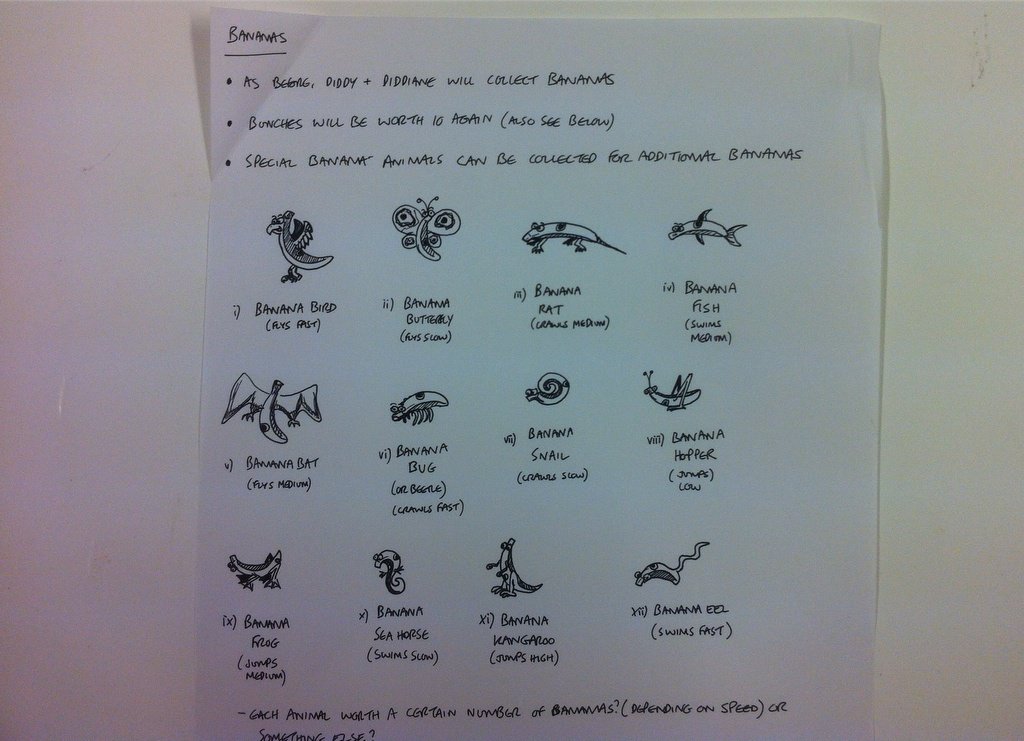 BANANAS
• AS BEFORE, DIDDY + DIDDIANE WILL COLLECT BANANAS
• BUNCHES WILL BE WORTH 10 AGAIN (ALSO SEE BELOW)
• SPECIAL BANANA ANIMALS CAN BE COLLECTED FOR ADDITIONAL BANANAS
i) BANANA BIRD
(FLYS FAST)
ii) BANANA
BUTTERFLY
(FLYS SLOW)
iii) BANANA
RAT
(CRAWLS MEDIUM)
iv) BANANA
FISH
(SWIMS
MEDIUM)
v) BANANA BAT
(FLYS MEDIUM)
vi) BANANA
BUG
(OR BEETLE)
(CRAWLS FAST)
vii) BANANA
SNAIL
(CRAWLS SLOW)
viii) BANANA
HOPPER
(JUMPS)
LOW
ix) BANANA
FROG
(JUMPS
MEDIUM)
x) BANANA
SEA HORSE
(SWIMS SLOW)
xi) BANANA
KANGAROO
(JUMPS HIGH)
xii) BANANA EEL
(SWIMS FAST)
- EACH ANIMAL WORTH A CERTAIN NUMBER OF BANANAS? (DEPENDING ON SPEED) OR
SOMETHING ELSE?